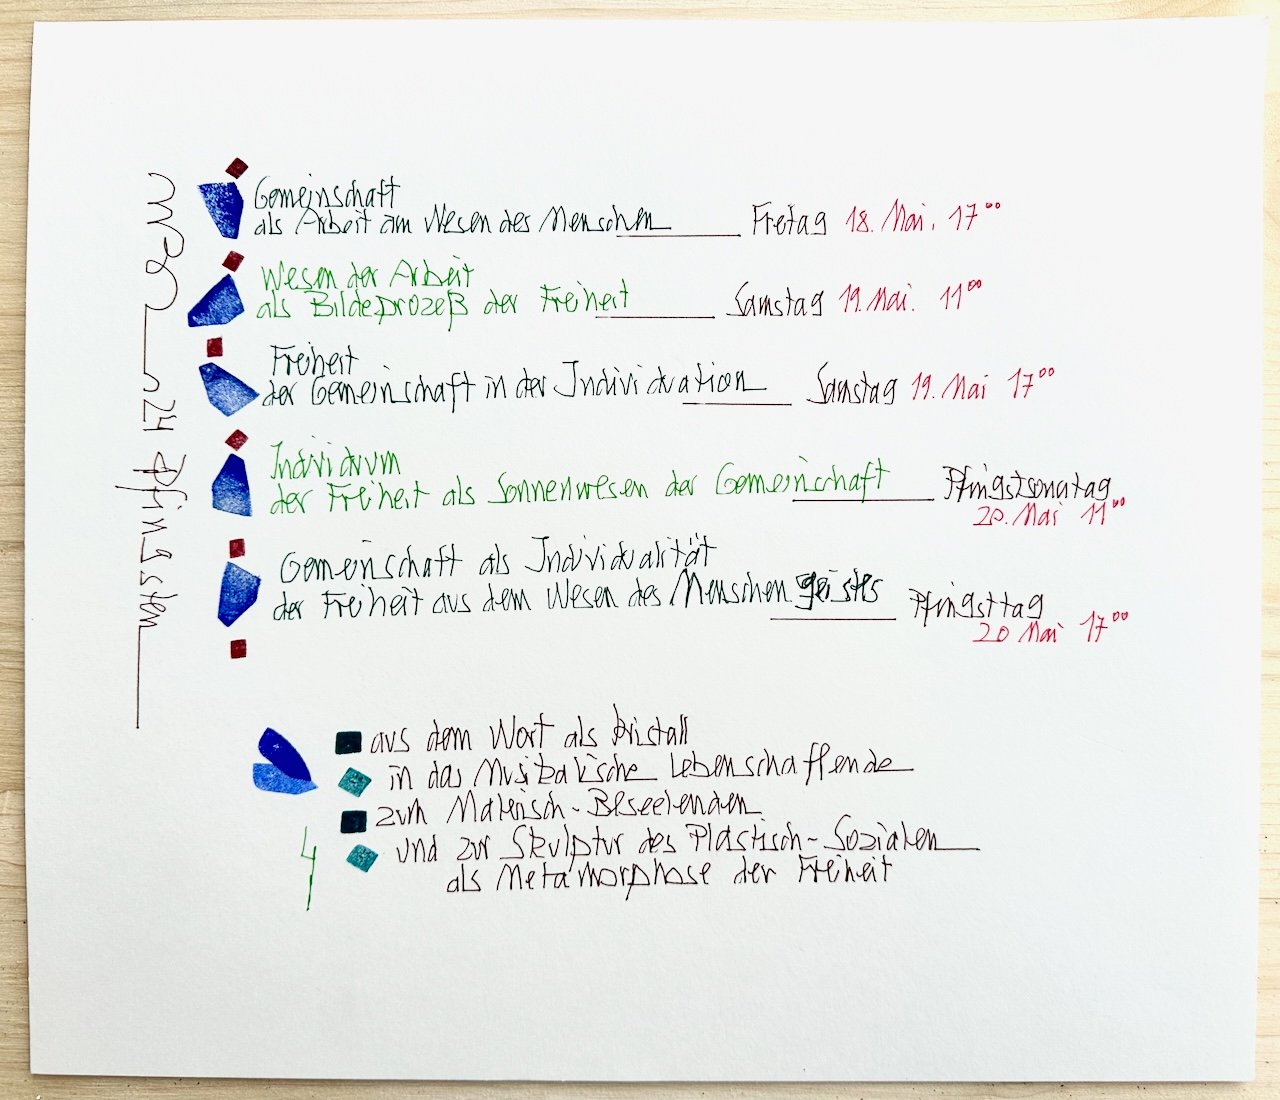 Gemeinschaft
als Arbeit am Wesen des Menschen Freitag 18. Mai. 17⁰⁰
Wesen der Arbeit
als Bildeprozeß der Freiheit Samstag 19. Mai. 11⁰⁰
Freiheit
der Gemeinschaft in der Individuation Samstag 19. Mai 17⁰⁰
Individuum
der Freiheit als Sonnenwesen der Gemeinschaft Pfingstsonntag
20. Mai 11⁰⁰
Gemeinschaft als Individualität
der Freiheit aus dem Wesen des Menschengeistes Pfingsttag
20 Mai 17⁰⁰
24 Pfingsten
aus dem Wort als Kristall
in das Musikalische Lebenschaffende
zum Malerisch-Beseelenden
und zur Skulptur des Plastisch-Sozialen
als Metamorphose der Freiheit